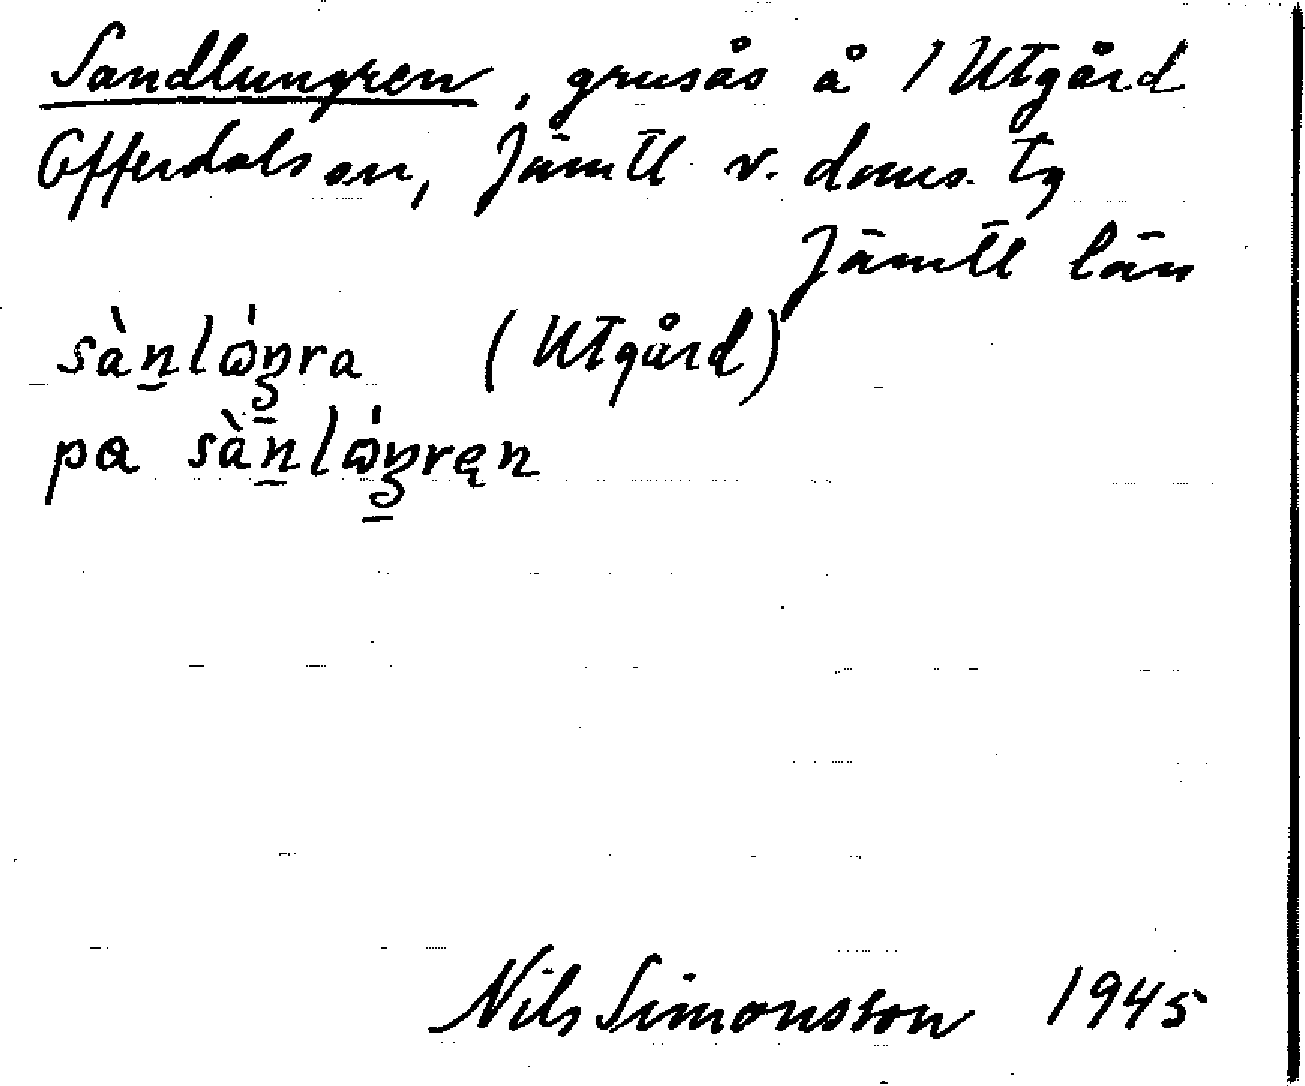 Sandlungren, grusås å 1 Utgård
Offerdals sn, Jämtl v. doms. tg
Jämtl län
sàn̠lώŋ̠ra (Utgård)
pɑ sàn̠lώŋ̠ręn
Nils Simonsson 1945